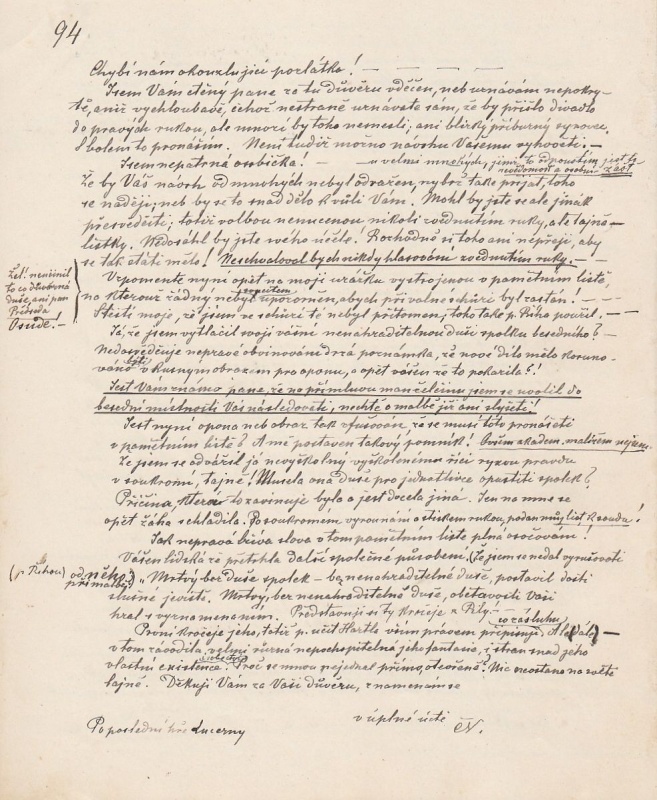 94
Chybí nám okouzlující pozlátko! — — — —
Jsem Vám ctěný pane za tu důvěru vděčen, neb uznávám nepokry-
tě, aniž vychloubavě, čehož nestraně uznáváte sám, že by přišlo divadlo
do pravých rukou, ale mnozí by toho nesnesli, ani blízký příbuzný synovec.
S bolem to pronáším. Není tudíž možno návrhu Vašemu vyhověti. —
Jsem nepatrná osobička! — u velmi mnohých, jimž to odpouštím, jest to
vědomost a osobní zášť
Že by Váš návrh od mnohých nebyl odražen, nýbrž také přijat, toho
se naději, neb by se to snad dělo k vůli Vám. Mohl by jste se ale jinak
přesvědčiti; totiž volbou nenucenou nikoli zvednutím ruky, ale tajně
lístky. Nedosáhl by jste svého účele! Rozhodně si toho ani nepřeji, aby
se tak státi mělo! Neschvaloval bych nikdy hlasování zvednutím ruky. —
Žel! neučinil
to co dobrá
duše, ani pan
Osude! —
Vzpomente nyní opět na moji urážku vystrojenou v pamětním listě,
na kterouž řádný nebyl upozorněn, abych při valné schůzi byl zastán. —
Štěstí moje, že jsem ve schůzi té nebyl přítomen; toho také p. Říha použil. —
Já, že jsem vytlačil svojí vášní nenahraditelnou duši spolku besedního? —
Nedosvědčuje nepravé obviňování drzá poznámka, že ono dílo mělo koruno-
váno býti vkusným obrazem pro oponu, a opět vášeň že to pokazila?!
Jest Vám známo pane, že na přímluvu manželčinu jsem se uvolil do
besední místnosti Vás následovati, nechtě o malbě již ani slyšeti!
Jest nyní opona neb obraz tak zfušován, že se musí tóto pronášeti
v pamětním listě? A mě postaven takový pomník! Ovšem akadem. malířem nejsem.
Že jsem se odvážil já nevyškolený vyškolenému říci ryzou pravdu
v soukromí, tajně! Musela ona duše pro jednotlivce opustiti spolek?
Příčina, která to zaviňuje byla a jest docela jiná. Jen na mne se
opět žáha schladila. Po soukromém vyrovnání a stiskem rukou, podán můj list k soudu!
Jak nepravá bývá slova v tom pamětním listě plná osočování!
Vášeň lidská že přetrhla další společné působení. (Že jsem se nedal vyrušovati
(p. Říhou) od něho při malbě)
„Mrtvý bez duše spolek — ba nenahraditelné duše, postavil dosti
slušné jeviště. Mrtvý, bez nenahraditelné duše, obětavosti Vaší
hrál s vyznamenáním. Představuji si ty kročeje
co zásluhu
První kročeje jeho, totiž p. učit Hartla vším právem připisuji. Ale dále —
v tom závodila, velmi různá nepochopitelná jeho fantasie, i stran snad jeho
vlastní existence. Proč se mnou nejednal přímo, otevřeně? Nic neostane na světě
tajné. Děkuji Vám za Vaši důvěru, znamenám se
v úplné úctě
Po poslední hře Lucerny
ČN.